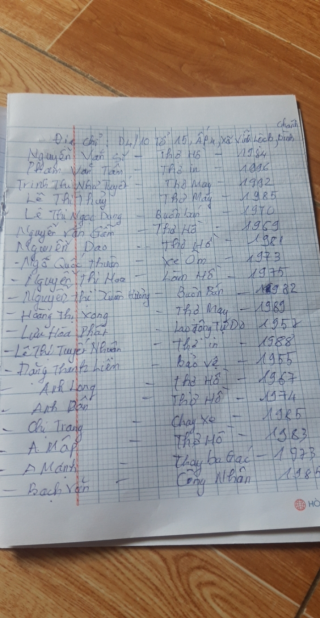 Địa chỉ: D4/10 Tổ 15, ấp 4, xã Vĩnh Lộc B, Bình chánh
Nguyễn Văn - Thợ Hồ - 1984
Phạm Văn Tâm - Thợ in - 1996
Trịnh Thị Như Tuyết Thợ May - 1992
Lê Thị Thủy - Thợ May - 1985
Lê Thị Ngọc Dung - Buôn bán - 1970
Nguyễn Văn Tiễn - Thợ Hồ - 1969
Nguyễn Đạo - Thợ Hồ - 1961
- Ngô Quốc - Xe Ôm - 1973
- Nguyễn Thị Hoa - Làm Hồ - 1975
- Nguyễn Thị Xuân Hường Buôn Bán - 1982
- Hoàng Thị Xong - Thợ May - 1989
- Lưu Hòa Phát - Lao động Tự Do - 1957
- Lê Thị Tuyết Nhung - Thợ in - 1988
- Đặng Thanh Liêm - Bảo vệ - 1955
- Anh Long - Thợ Hồ - 1967
- Anh - Thợ Hồ - 1974
- Chị Trang - Chạy Xe - 1985
- A Mập - Thợ Hồ - 1963
- A Mạnh - Thầy - 1973
- Bạch Vân - Công Nhân 1985
HỒ